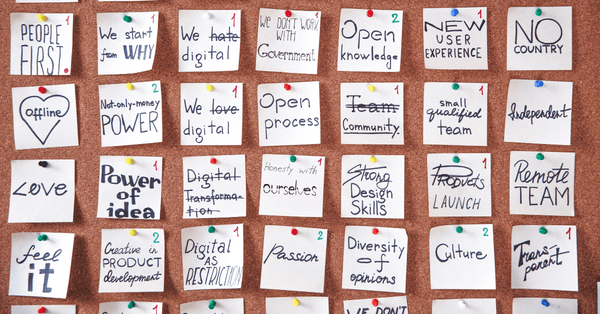 PEOPLE
FIRST.
We start
from WHY
1
We hate
digital
We DON'T WORK
WITH
Government
2
Open
knowledge
1
NEW
USER
EXPERIENCE
NO
COUNTRY
offline
2
Not-only-money
POWER
1
We love
digital
Open
process
1
Team
Community
1
small
qualified
team
Independent
Love
1
Power
of
idea
1
Digital
Transforma-
tion
1
Honesty with
ourselves
Strong
Design
Skills
1
Products
LAUNCH
Remote
TEAM
feel
it
2
Creative in
PRODUCT
development
1
Digital
AS
RESTRICTION
2
Passion
Diversity
of
opinions
2
Culture
1
Trans-
parent
WE DON'T